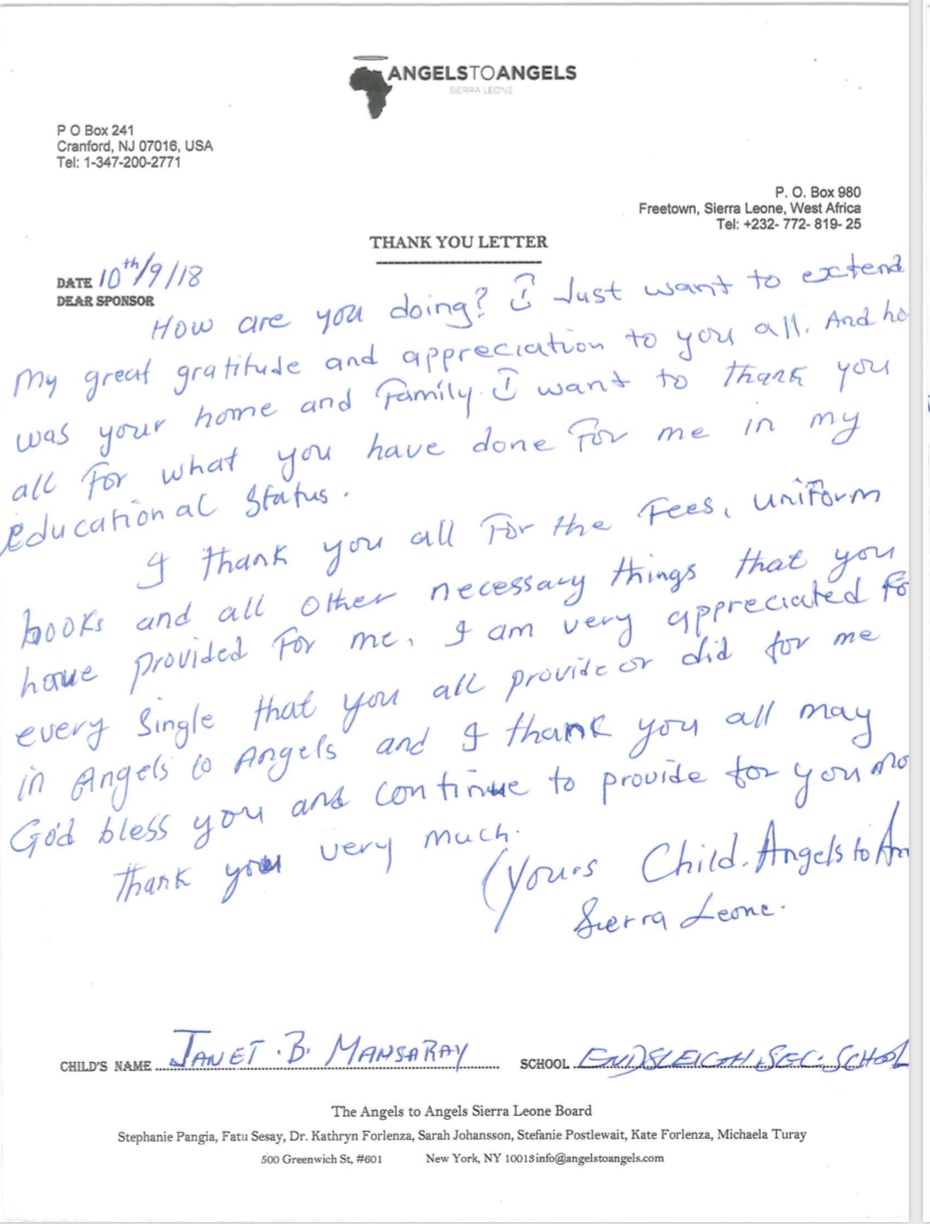 ANGELSTOANGELS
SIERRA LEONE
P O Box 241
Cranford, NJ 07016, USA
Tel: 1-347-200-2771
P. O. Box 980
Freetown, Sierra Leone, West Africa
Tel: +232- 772- 819- 25
THANK YOU LETTER
DATE 10th/9/18
DEAR SPONSOR
How are you doing? I Just want to extend
My great gratitude and appreciation to you all. And ho
was your home and Family. I want to thank you
all For what you have done For me in my
Educational Status.
I thank you all For the Fees, uniform
books and all other necessary things that you
have provided For me, I am very appreciated Fo
every Single that you all provide or did for me
in Angels to Angels and I thank you all may
God bless you and continue to provide for you mo
Thank you very much.
(Yours Child. Angels to An
Sierra Leone.
CHILD'S NAME JANET .B. MANSARAY SCHOOL ENDSLEIGH SEC. SCHOOL
The Angels to Angels Sierra Leone Board
Stephanie Pangia, Fatu Sesay, Dr. Kathryn Forlenza, Sarah Johansson, Stefanie Postlewait, Kate Forlenza, Michaela Turay
500 Greenwich St, #601 New York, NY 10013info@angelstoangels.com